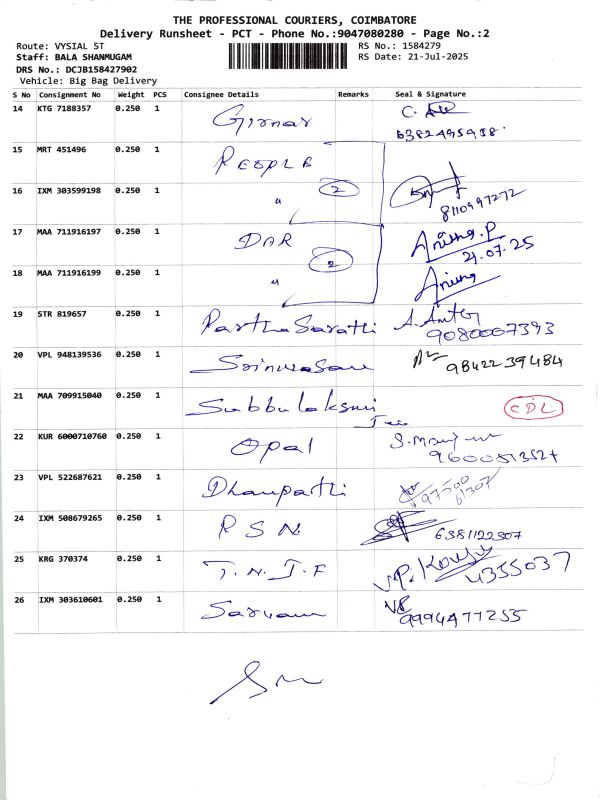 THE PROFESSIONAL COURIERS, COIMBATORE
Delivery Runsheet - PCT - Phone No.:9047080280 - Page No.:2
Route: VYSIAL ST
RS No.: 1584279
Staff: BALA SHANMUGAM
RS Date: 21-Jul-2025
DRS No.: DCJB158427902
Vehicle: Big Bag Delivery
S No Consignment No Weight PCS Consignee Details Remarks Seal & Signature
14 KTG 7188357 0.250 1 Girnar C.
6382495938
15 MRT 451496 0.250 1 PEOPLE
16 IXM 303599198 0.250 1 " 2
8110997272
17 MAA 711916197 0.250 1 DAR Aruna.P
21.07.25
18 MAA 711916199 0.250 1 " 2 Aruna
19 STR 819657 0.250 1 Partha Sarathi A.
9080007393
20 VPL 948139536 0.250 1 Srinivasan 9842239484
21 MAA 709915040 0.250 1 Subbulaksmi CDL
22 KUR 6000710760 0.250 1 Opal
23 VPL 522687621 0.250 1 Dhanpathi 97500
61307
24 IXM 508679265 0.250 1 R S N 6381122507
25 KRG 370374 0.250 1 T. N. J. F 4355037
26 IXM 303610601 0.250 1 Sarvam 9994477255